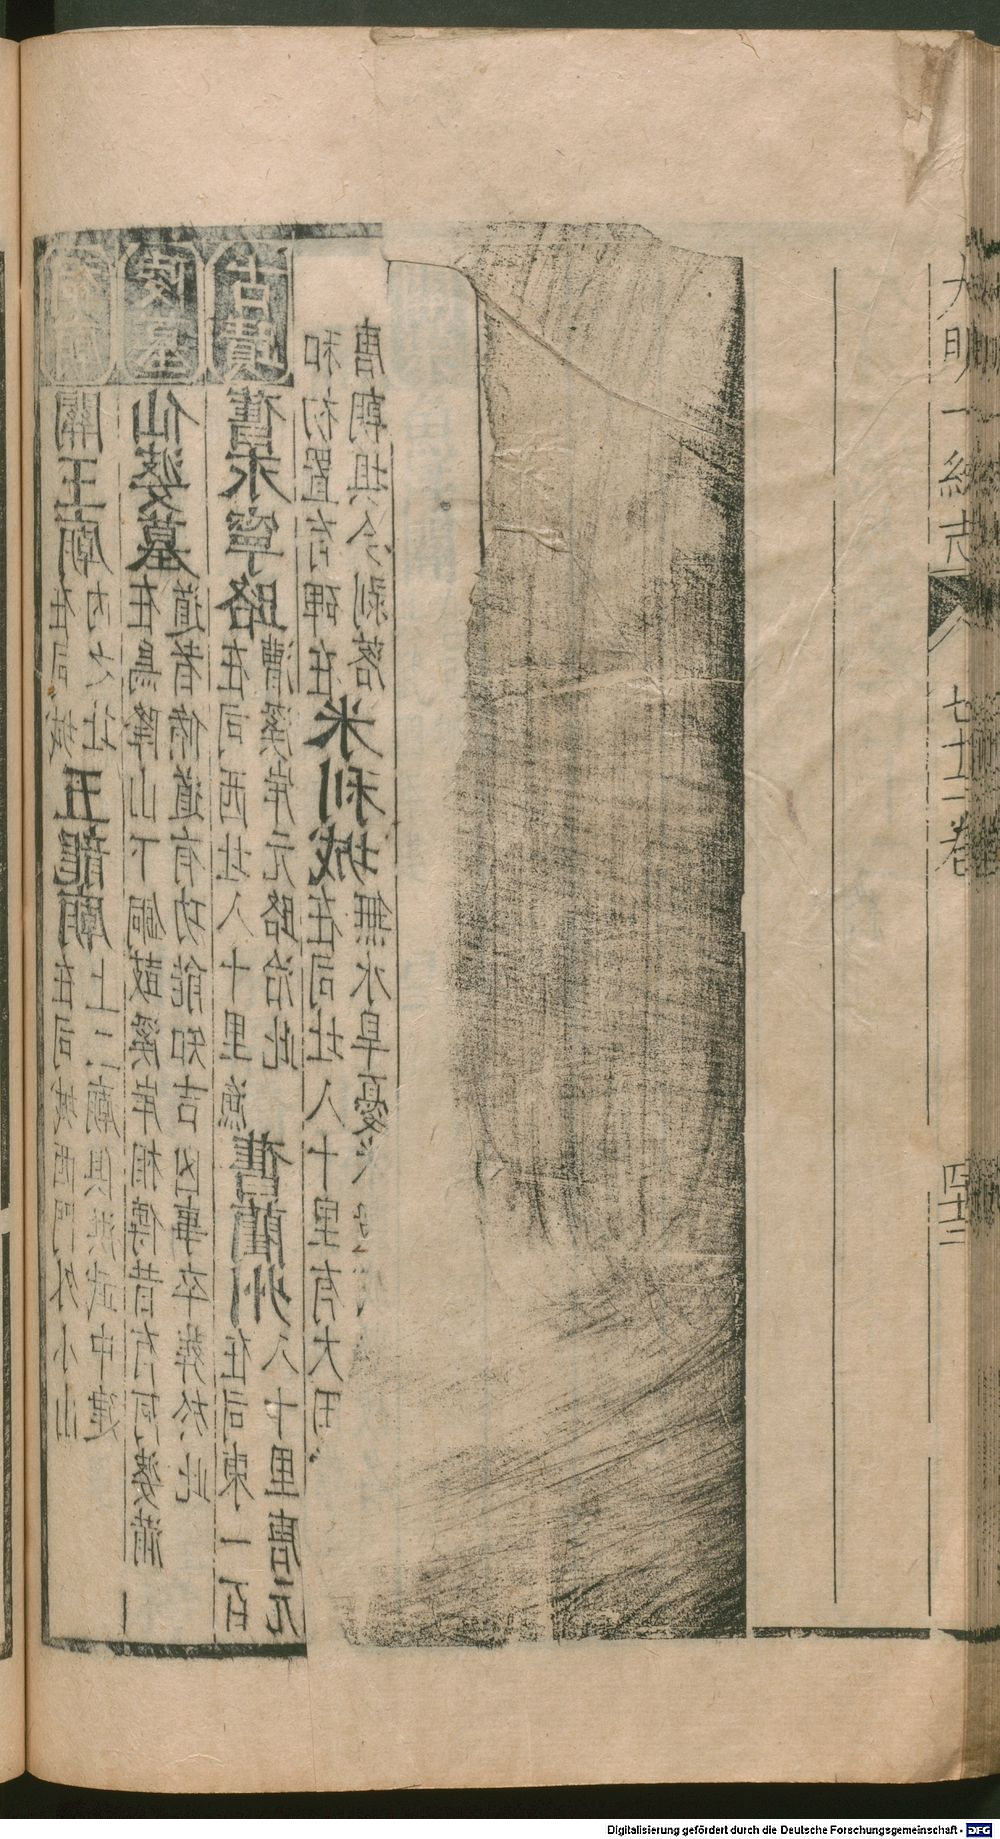 祠廟 關王廟 在司城
內之北
五龍廟 在司城西門外小山
上二廟俱洪武中建
陵墓 仙婆墓 在烏降山下銅鼓溪岸相傳昔有阿婆蒲
道者脩道有功能知吉凶事卒葬於此
古蹟 舊永寧路 在司西北八十里漁
漕溪岸元路治此
舊藺州 在司東一百
八十里唐元
和初置有碑在
唐朝壩今剝落
米利城 在司北八十里有大田、
無水旱憂
大明一統志 七十二卷 四十三
Digitalisierung gefördert durch die Deutsche Forschungsgemeinschaft - DFG